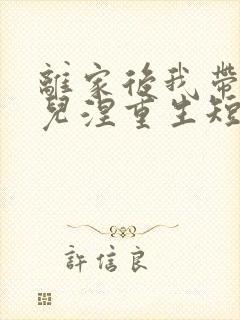 離家後我帶
兒涅重生短
許信良